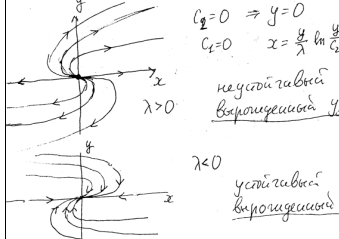 y
C₂=0 ⇒ y=0
C₁=0 x = y/λ ln y/C₂
x
λ>0
неустойчивый
вырожденный у.
y
λ<0
x
устойчивый
вырожденный